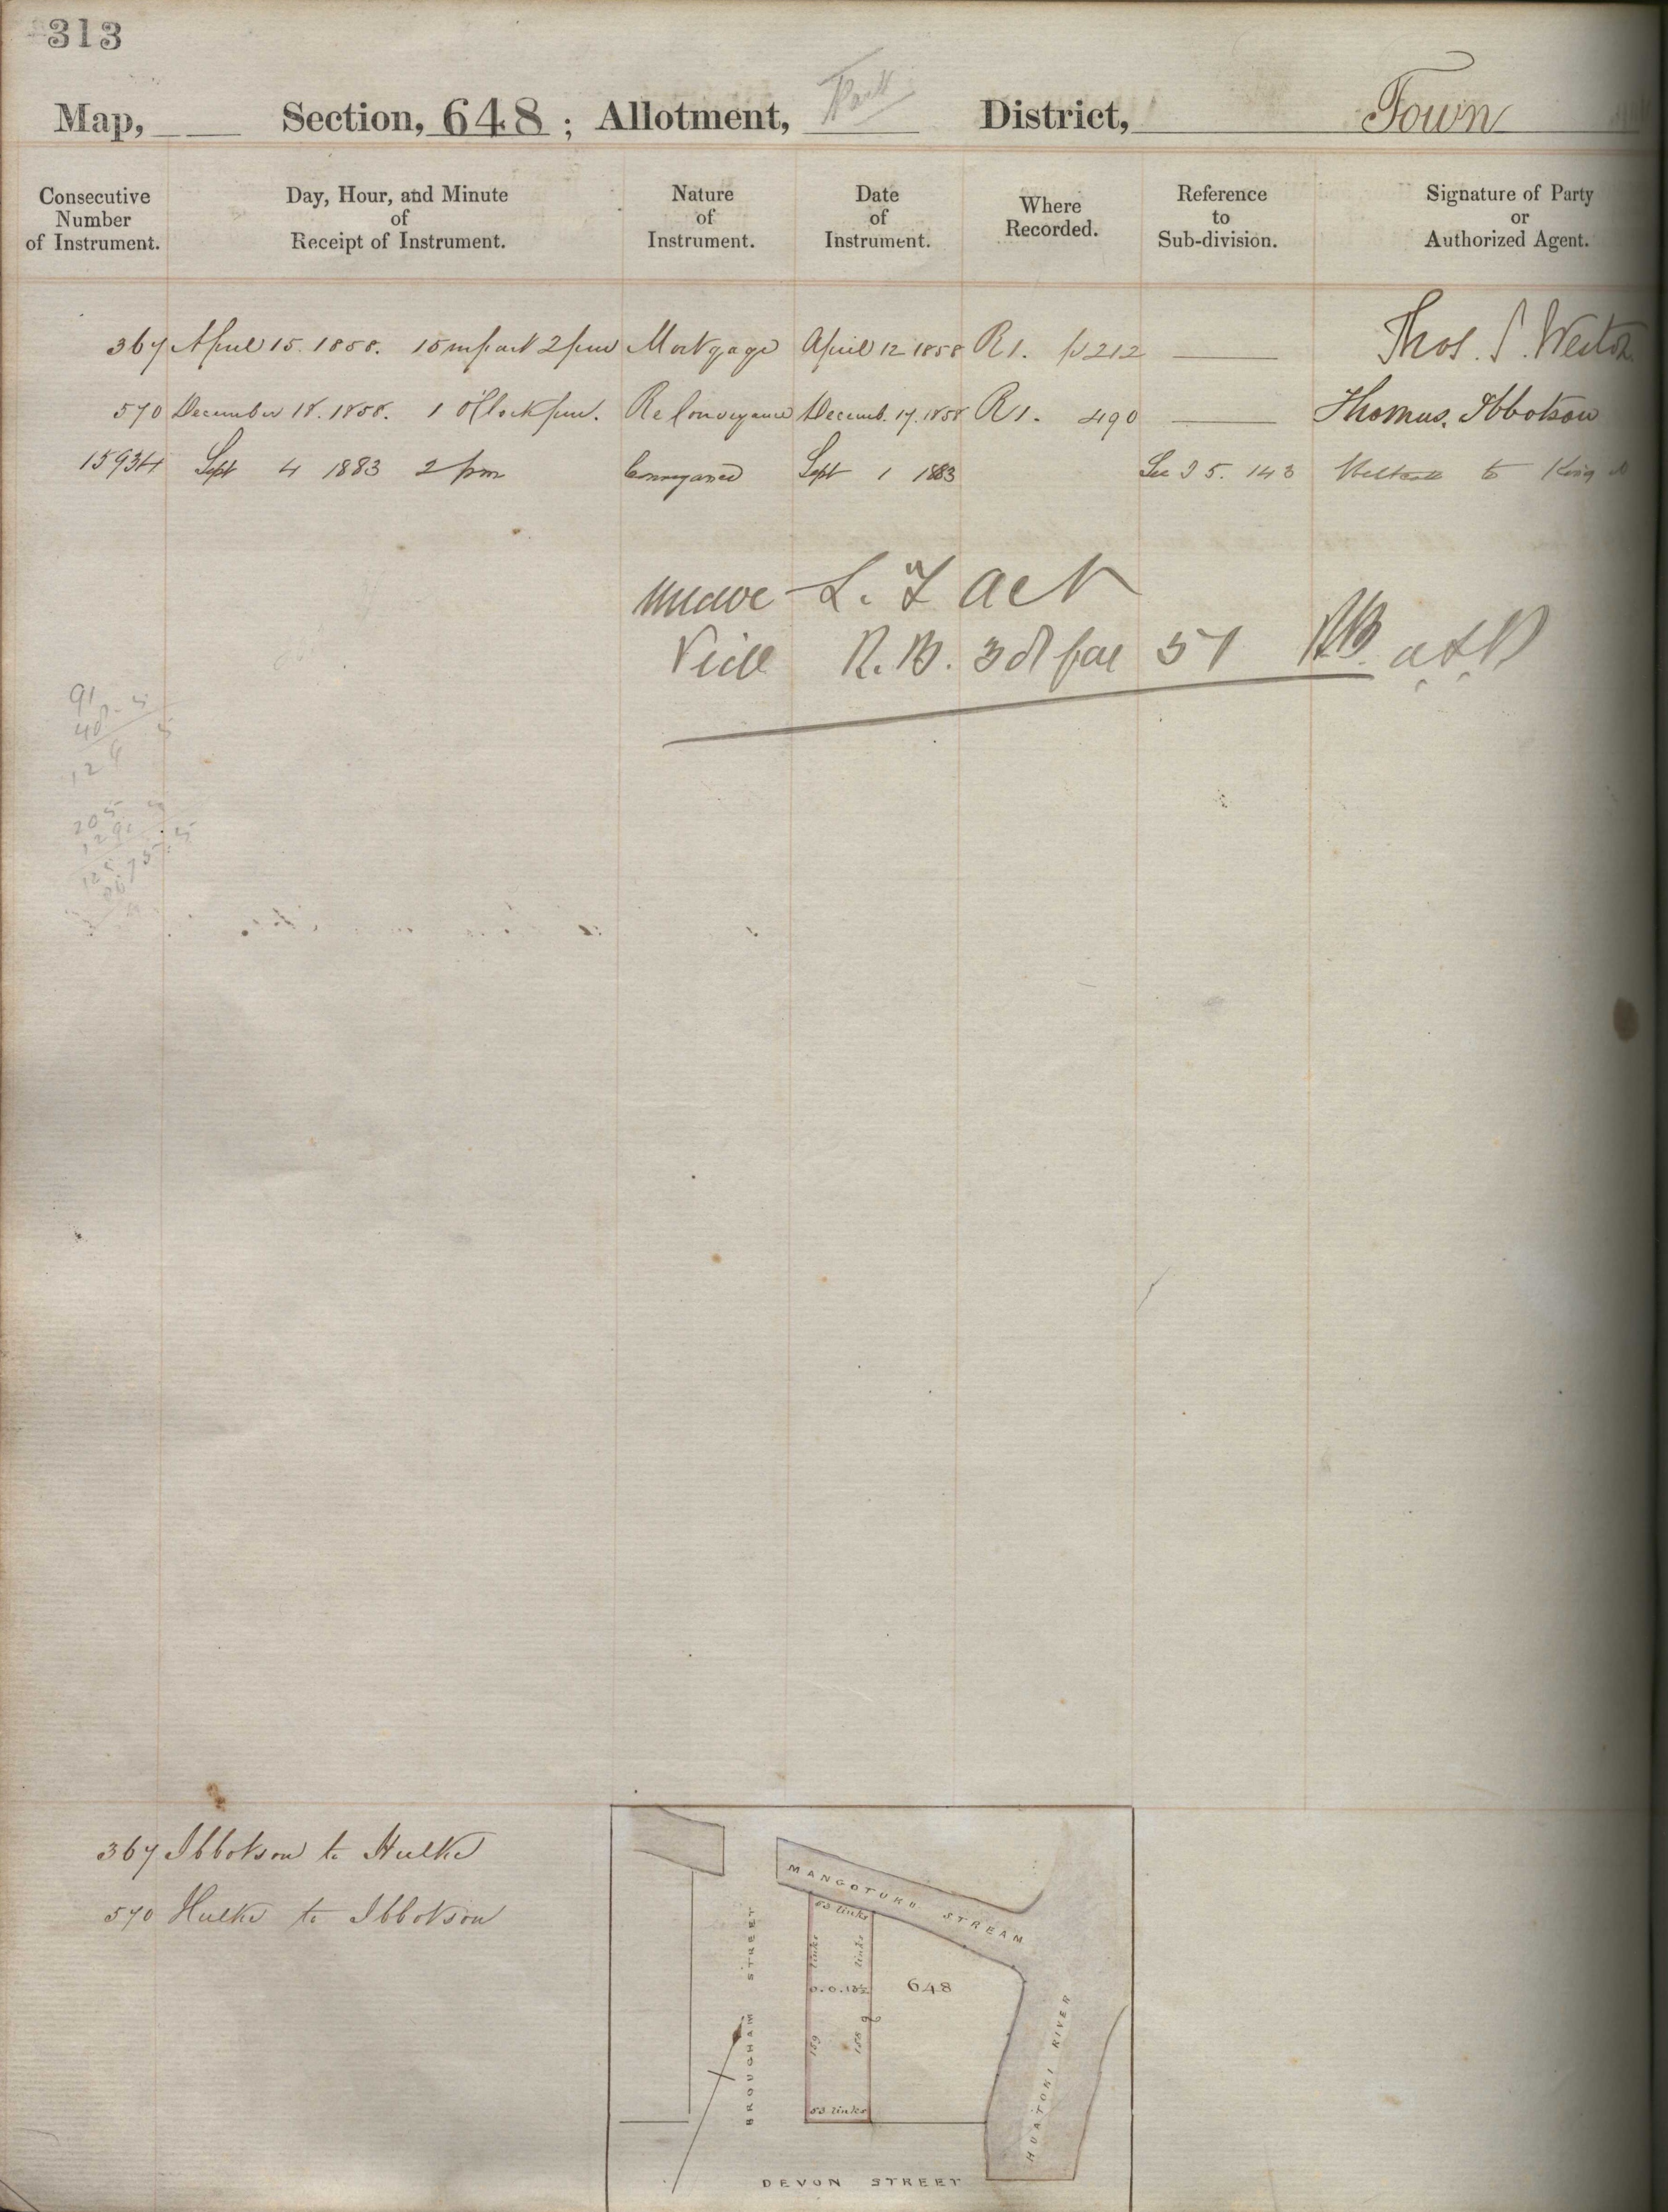 313
Map, Section, 648 ; Allotment, Part District, Town
Consecutive Number of Instrument.
Day, Hour, and Minute of Receipt of Instrument.
Nature of Instrument.
Date of Instrument.
Where Recorded.
Reference to Sub-division.
Signature of Party or Authorized Agent.
367 April 15. 1858. 15 m past 2 pm Mortgage April 12 1858 R 1. p 212 Thos. S. Weston
570 December 18. 1858. 1 o'Clock pm. ReConveyance Decemb. 17. 1858 R 1. 490 Thomas. Ibbotson
15934 Sept 4 1883 2 pm Conveyance Sept 1 1883 See I 5. 143 to King
L. T Act
Vide R. B. 38 fol 51
91
48
205
367 Ibbotson to Hulke
570 Hulke to Ibbotson
MANGOTUKU STREAM
53 links
links
links
BROUGHAM STREET
0. 0. 13½
648
159
158
53 links
HUATOKI RIVER
DEVON STREET